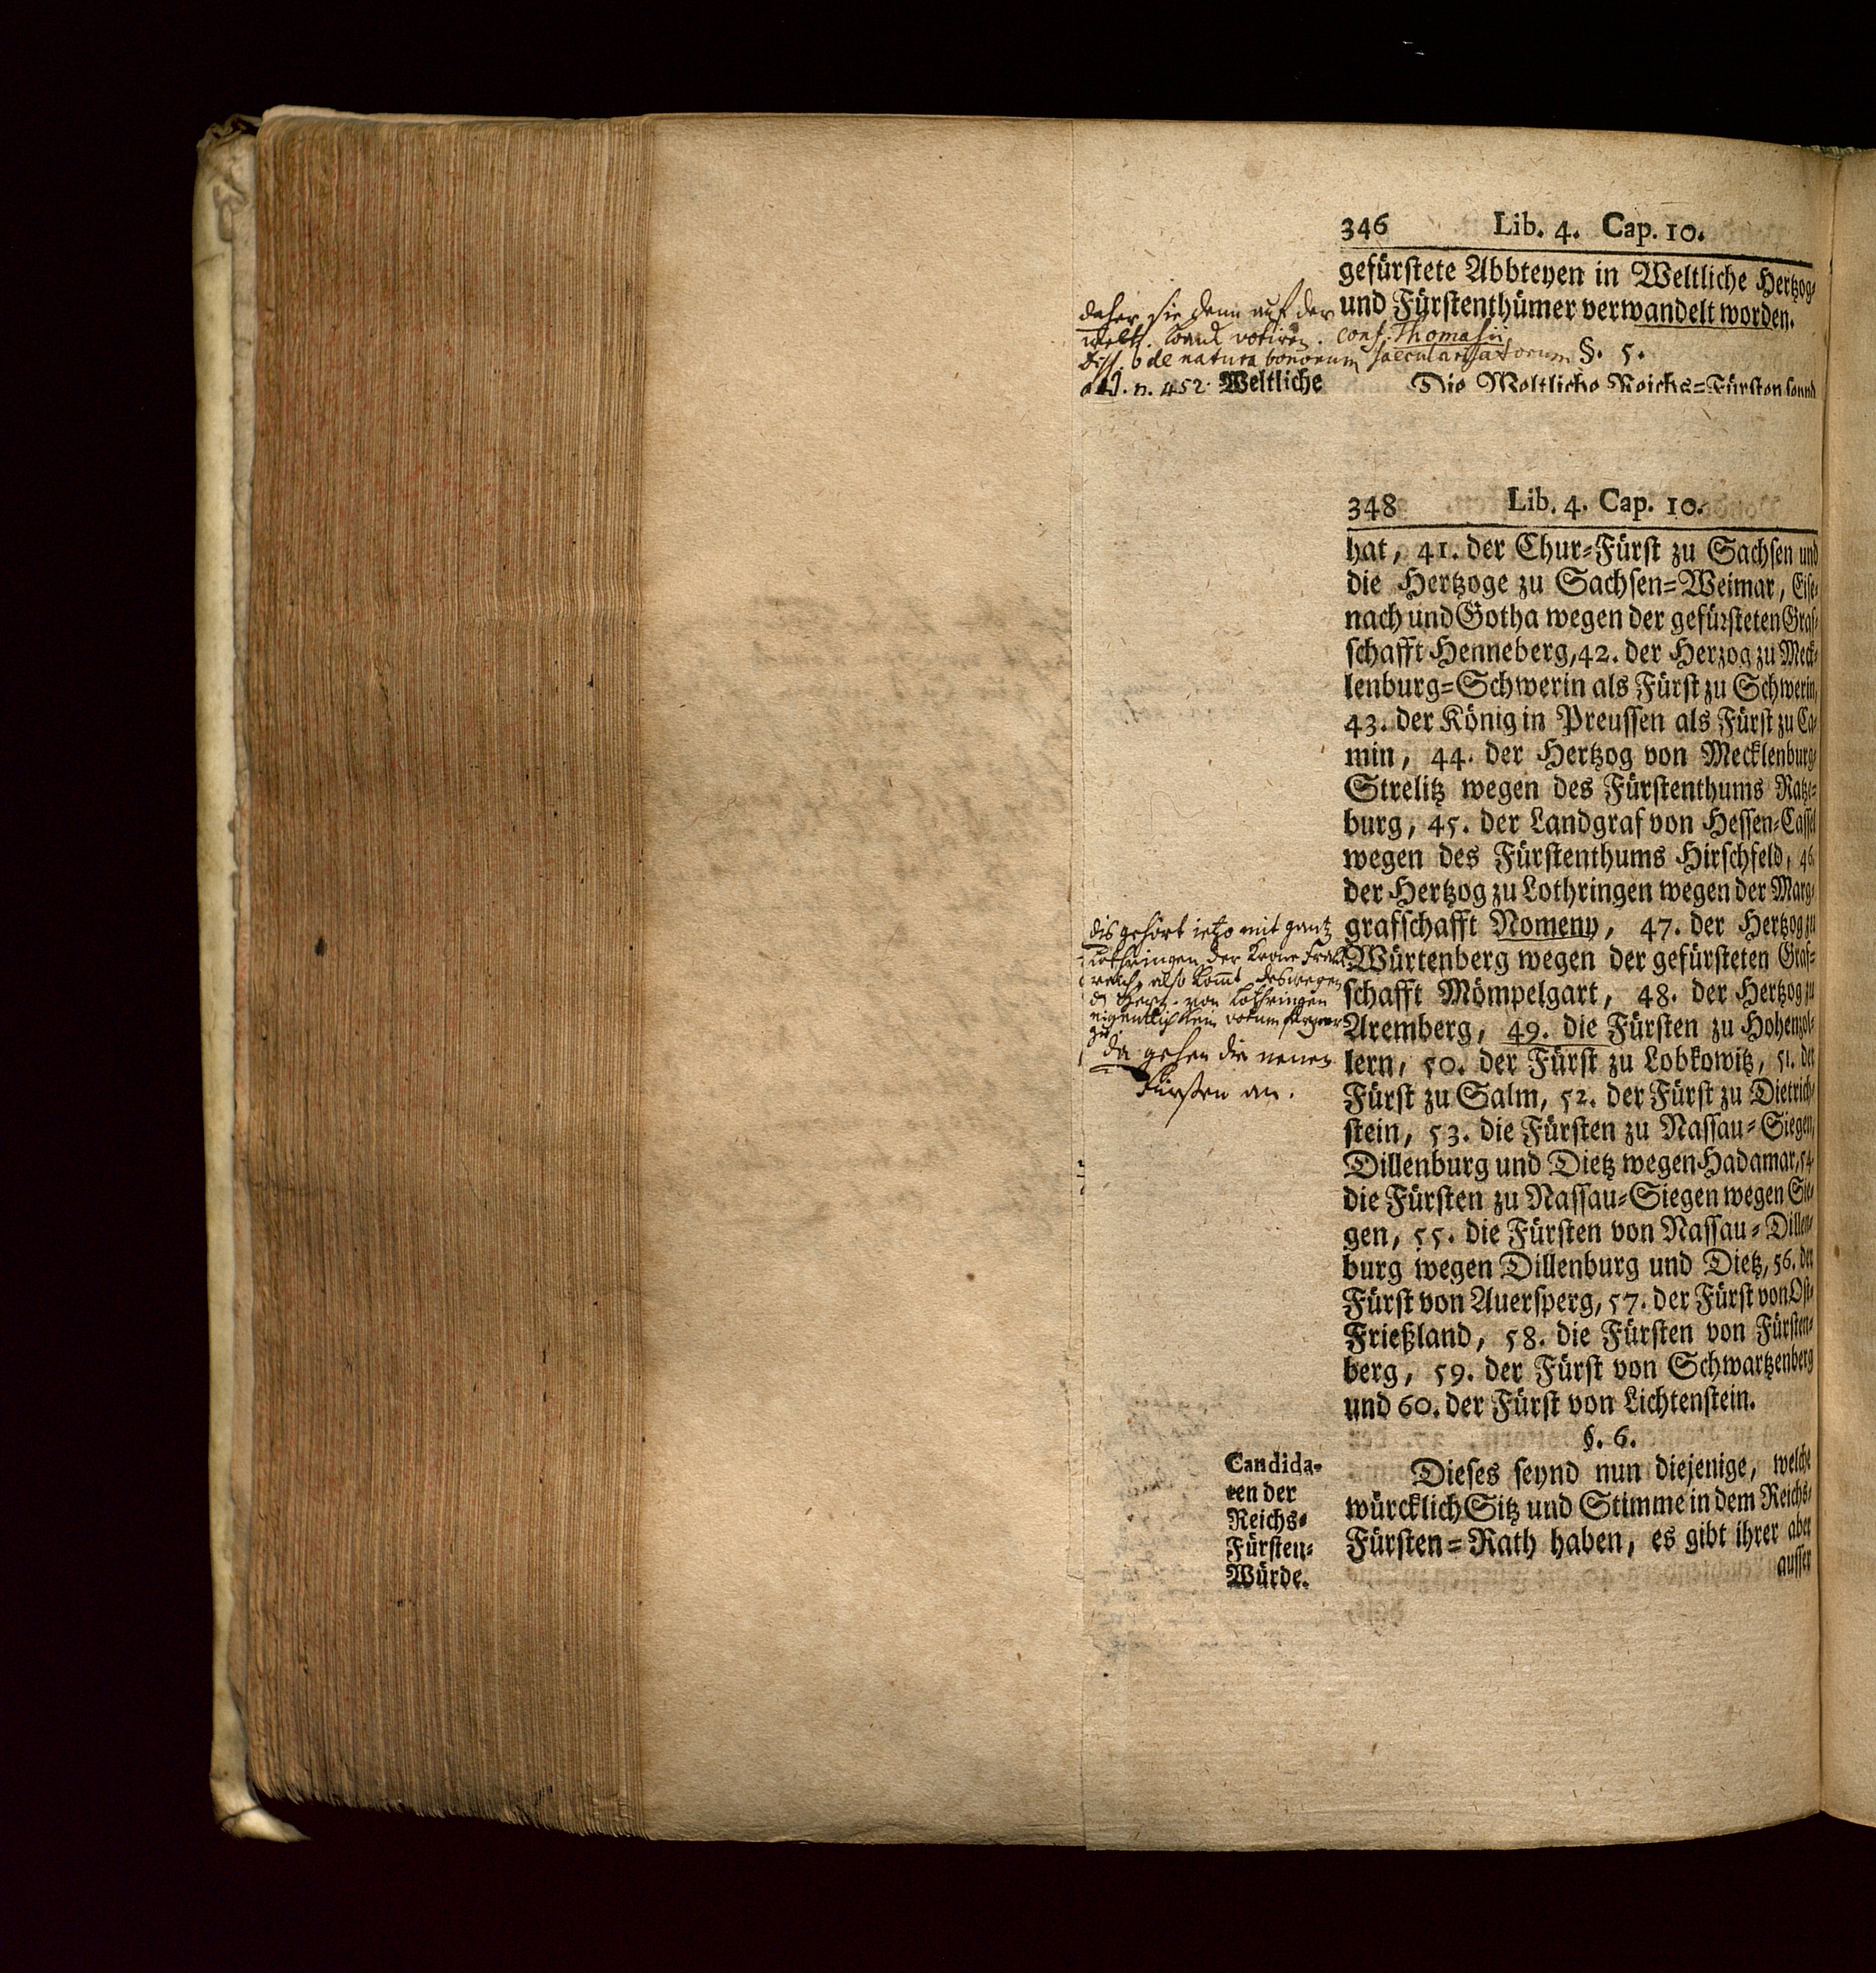 346 Lib. 4. Cap. 10.
gefürstete Abbteyen in Weltliche Hertzog-
und Fürstenthümer verwandelt worden.
daher sie denn auf der
weltl. Banck votiren. conf. Thomasii
Diss. de natura bonorum saecularisatorum
n. 452.
§. 5.
Weltliche
Die Weltliche Reichs=Fürsten seynd
348 Lib. 4. Cap. 10.
hat, 41. der Chur=Fürst zu Sachsen und
die Hertzoge zu Sachsen=Weimar, Eise-
nach und Gotha wegen der gefürsteten Graf-
schafft Henneberg, 42. der Herzog zu Meck-
lenburg=Schwerin als Fürst zu Schwerin,
43. der König in Preussen als Fürst zu Ca-
min, 44. der Hertzog von Mecklenburg-
Strelitz wegen des Fürstenthums Ratze-
burg, 45. der Landgraf von Hessen-Cassel
wegen des Fürstenthums Hirschfeld, 46.
der Hertzog zu Lothringen wegen der Marg-
grafschafft Nomeny, 47. der Hertzog zu
Würtenberg wegen der gefürsteten Graf-
schafft Mömpelgart, 48. der Hertzog zu
Aremberg, 49. die Fürsten zu Hohenzol-
lern, 50. der Fürst zu Lobkowitz, 51. der
Fürst zu Salm, 52. der Fürst zu Dietrich-
stein, 53. die Fürsten zu Nassau=Siegen,
Dillenburg und Dietz wegen Hadamar, 54.
die Fürsten zu Nassau=Siegen wegen Sie-
gen, 55. die Fürsten von Nassau=Dillen-
burg wegen Dillenburg und Dietz, 56. der
Fürst von Auersperg, 57. der Fürst von Ost-
Frießland, 58. die Fürsten von Fürsten-
berg, 59. der Fürst von Schwartzenberg
und 60. der Fürst von Lichtenstein.
dis gehört ietzo mit gantz
Lothringen der Krone Frank
reich, also komt deswegen
Hertz. von Lothringen
eigentlich kein votum
zu
da gehen die neuen
Fürsten an.
§. 6.
Candida-
ten der
Reichs-
Fürsten-
Würde.
Dieses seynd nun diejenige, welche
würcklich Sitz und Stimme in dem Reichs-
Fürsten=Rath haben, es gibt ihrer aber
ausser